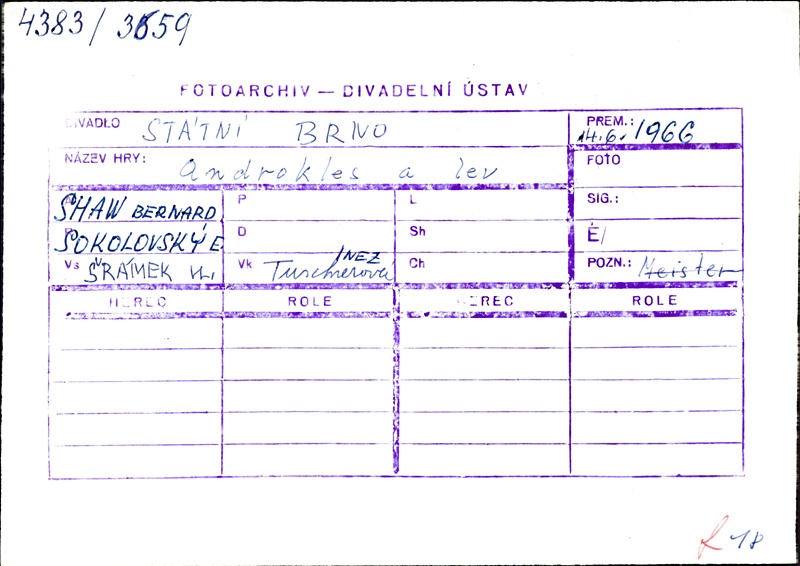 4383/3659
FOTOARCHIV — DIVADELNÍ ÚSTAV
DIVADLO STÁTNÍ BRNO PREM.: 14.6.1966
NÁZEV HRY: Androkles a lev FOTO
SHAW BERNARD P L SIG.:
SOKOLOVSKÝ E D Sh É/
Vs ŠRÁMEK Vl. Vk Tuschnerová INEZ Ch POZN.: Meister
HEREC ROLE HEREC ROLE
18